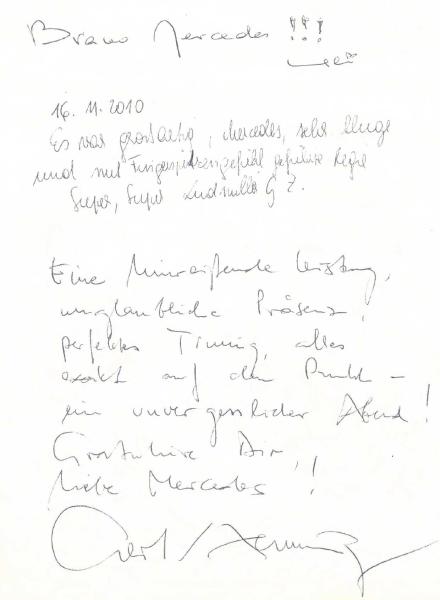 Bravo Mercedes !!!
16. 11. 2010
Es war grossartig, Mercedes, sehr kluge
und mit Fingerspitzengefühl geführte Regie
Super, Super Ludmilla G Z.
Eine hinreißende Leistung,
unglaubliche Präsenz,
perfektes Timing, alles
exakt auf den Punkt –
ein unvergesslicher Abend!
Gratuliere Dir,
liebe Mercedes !